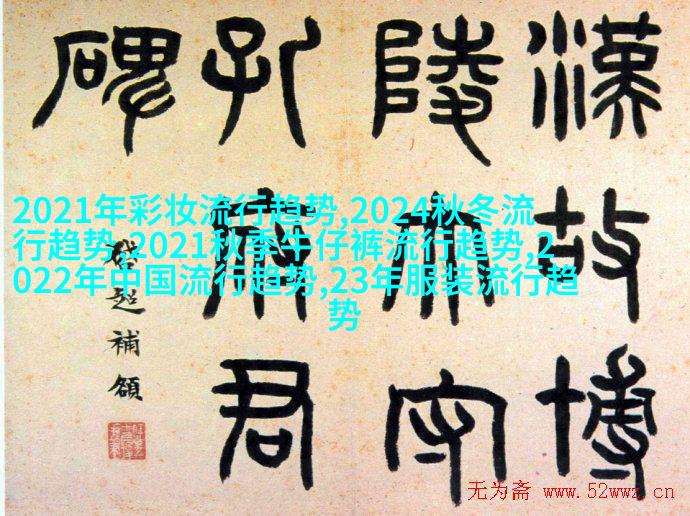 漢故博
陵太守
孔府君
碑
啓超補額
2021年彩妆流行趋势,2024秋冬流
行趋势,2021秋季牛仔裤流行趋势,2
022年中国流行趋势,23年服装流行趋
势
无为斋 www.52wwz.cn